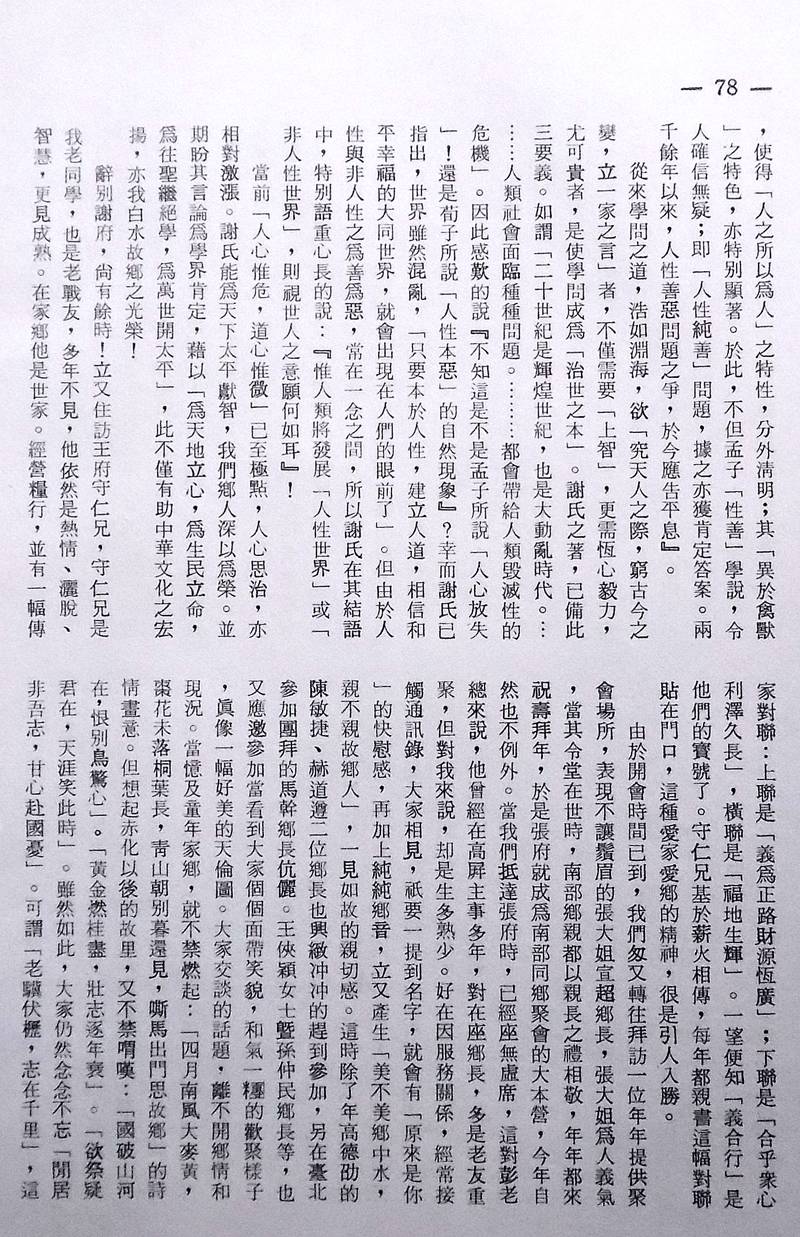 — 78 —
，使得「人之所以爲人」之特性，分外清明；其「異於禽獸
」之特色，亦特別顯著。於此，不但孟子「性善」學說，令
人確信無疑；即「人性純善」問題，據之亦獲肯定答案。兩
千餘年以來，人性善惡問題之爭，於今應告平息』。
從來學問之道，浩如淵海，欲「究天人之際，窮古今之
變，立一家之言」者，不僅需要「上智」，更需恆心毅力，
尤可貴者，是使學問成爲「治世之本」。謝氏之著，已備此
三要義。如謂「二十世紀是輝煌世紀，也是大動亂時代。…
……人類社會面臨種種問題。………都會帶給人類毀滅性的
危機」。因此感歎的說『不知這是不是孟子所說「人心放失
」！還是荀子所說「人性本惡」的自然現象』？幸而謝氏已
指出，世界雖然混亂，「只要本於人性，建立人道，相信和
平幸福的大同世界，就會出現在人們的眼前了」。但由於人
性與非人性之爲善爲惡，常在一念之間，所以謝氏在其結語
中，特別語重心長的說：『惟人類將發展「人性世界」或「
非人性世界」，則視世人之意願何如耳』！
當前「人心惟危，道心惟微」已至極點，人心思治，亦
相對激漲。謝氏能爲天下太平獻智，我們鄉人深以爲榮。並
期盼其言論爲學界肯定，藉以「爲天地立心，爲生民立命，
爲往聖繼絕學，爲萬世開太平」，此不僅有助中華文化之宏
揚，亦我白水故鄉之光榮！
辭別謝府，尚有餘時！立又住訪王府守仁兄，守仁兄是
我老同學，也是老戰友，多年不見，他依然是熱情、灑脫、
智慧，更見成熟。在家鄉他是世家。經營糧行，並有一幅傳
家對聯：上聯是「義爲正路財源恆廣」；下聯是「合乎衆心
利澤久長」，橫聯是「福地生輝」。一望便知「義合行」是
他們的寶號了。守仁兄基於薪火相傳，每年都親書這幅對聯
貼在門口，這種愛家愛鄉的精神，很是引人入勝。
由於開會時間已到，我們匆又轉往拜訪一位年年提供聚
會場所，表現不讓鬚眉的張大姐宣超鄉長，張大姐爲人義氣
，當其令堂在世時，南部鄉親都以親長之禮相敬，年年都來
祝壽拜年，於是張府就成爲南部同鄉聚會的大本營，今年自
然也不例外。當我們抵達張府時，已經座無虛席，這對彭老
總來說，他曾經在高屏主事多年，對在座鄉長，多是老友重
聚，但對我來說，却是生多熟少。好在因服務關係，經常接
觸通訊錄，大家相見，祇要一提到名字，就會有「原來是你
」的快慰感，再加上純純鄉音，立又產生「美不美鄉中水，
親不親故鄉人」，一見如故的親切感。這時除了年高德劭的
陳敏捷、赫道遵二位鄉長也興緻冲冲的趕到參加，另在臺北
參加團拜的馬幹鄉長伉儷。王俠穎女士曁孫仲民鄉長等，也
又應邀參加當看到大家個個面帶笑貌，和氣一糰的歡聚樣子
，眞像一幅好美的天倫圖。大家交談的話題，離不開鄉情和
現況。當憶及童年家鄉，就不禁燃起：「四月南風大麥黃，
棗花未落桐葉長，青山朝別暮還見，嘶馬出門思故鄉」的詩
情畫意。但想起赤化以後的故里，又不禁喟嘆：「國破山河
在，恨別鳥驚心」。「黃金燃桂盡，壯志逐年衰」。「欲祭疑
君在，天涯笑此時」。雖然如此，大家仍然念念不忘「閒居
非吾志，甘心赴國憂」。可謂「老驥伏櫪，志在千里」，這